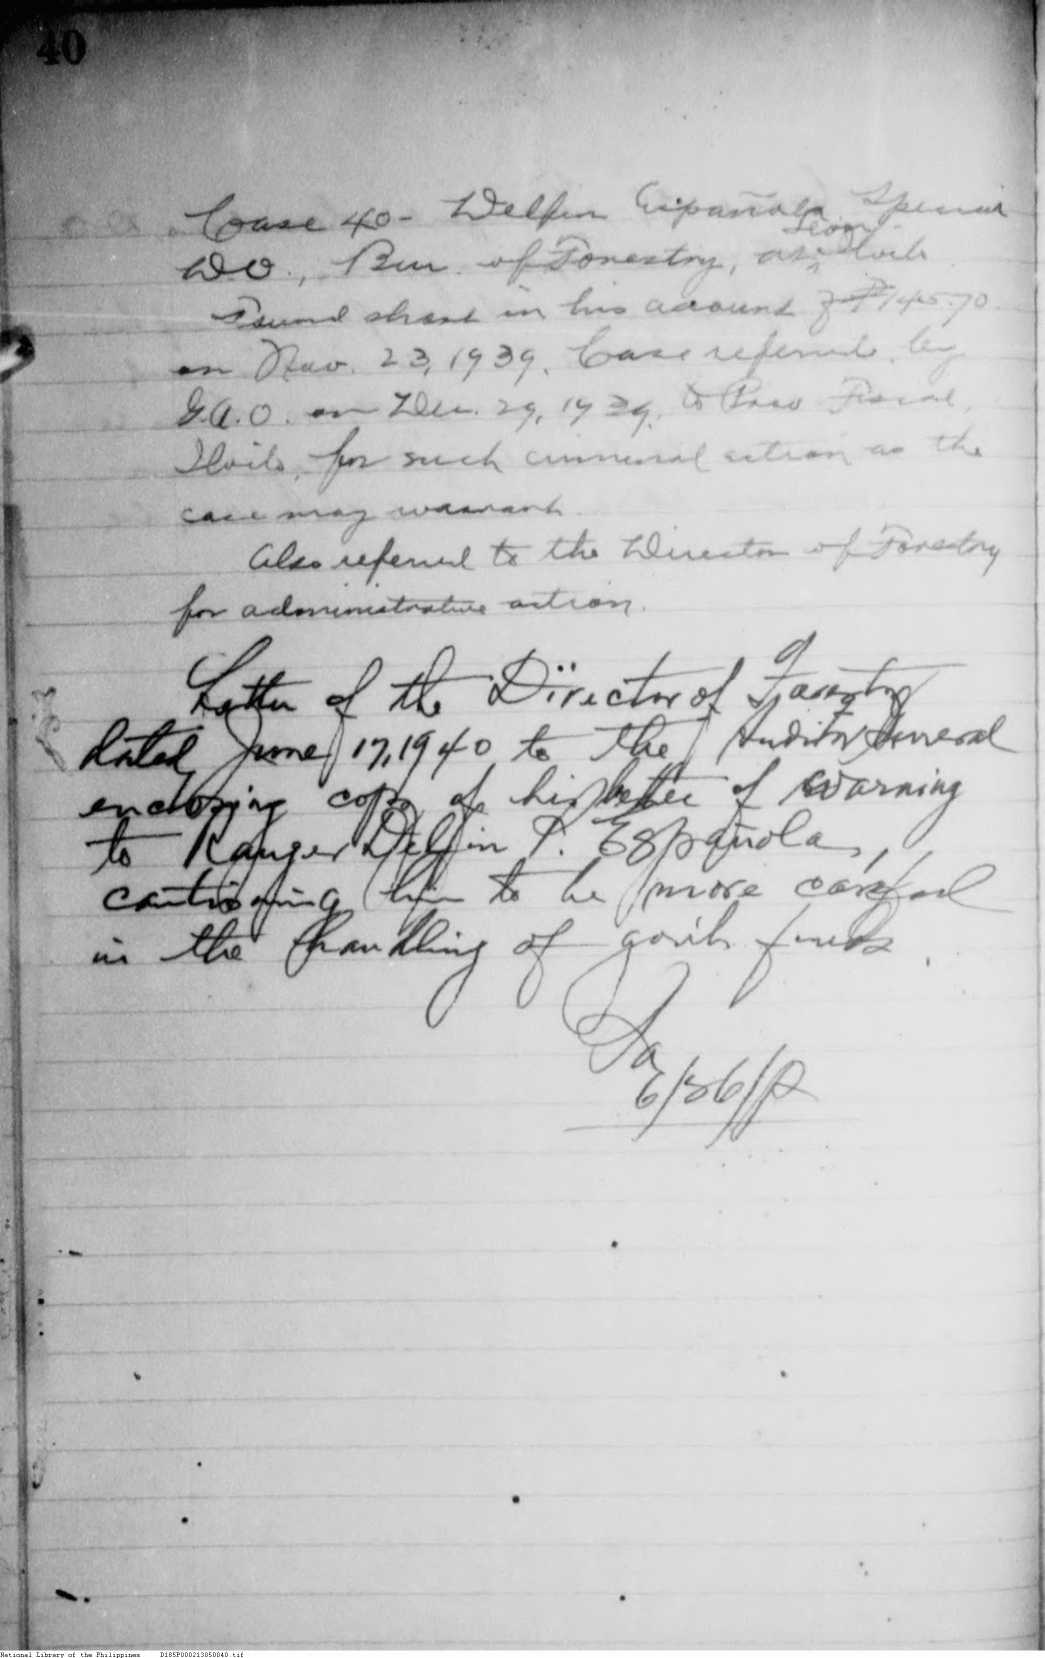 40
Case 40 - Delfin Española, Special
D.O., Bur. of Forestry, at Leon, Iloilo
Found short in his account of ₱145.70
on Nov. 23, 1939. Case referred by
G.A.O. on Dec. 29, 1939, to Prov Fiscal,
Iloilo, for such criminal action as the
case may warrant.
Also referred to the Director of Forestry
for administrative action.
Letter of the Director of Forestry
dated June 17, 1940 to the Auditor General
enclosing copy of his letter of warning
to Ranger Delfin P. Española,
cautioning him to be more careful
in the handling of gov't funds.
6/26/
National Library of the Philippines D185P000213050040.tif